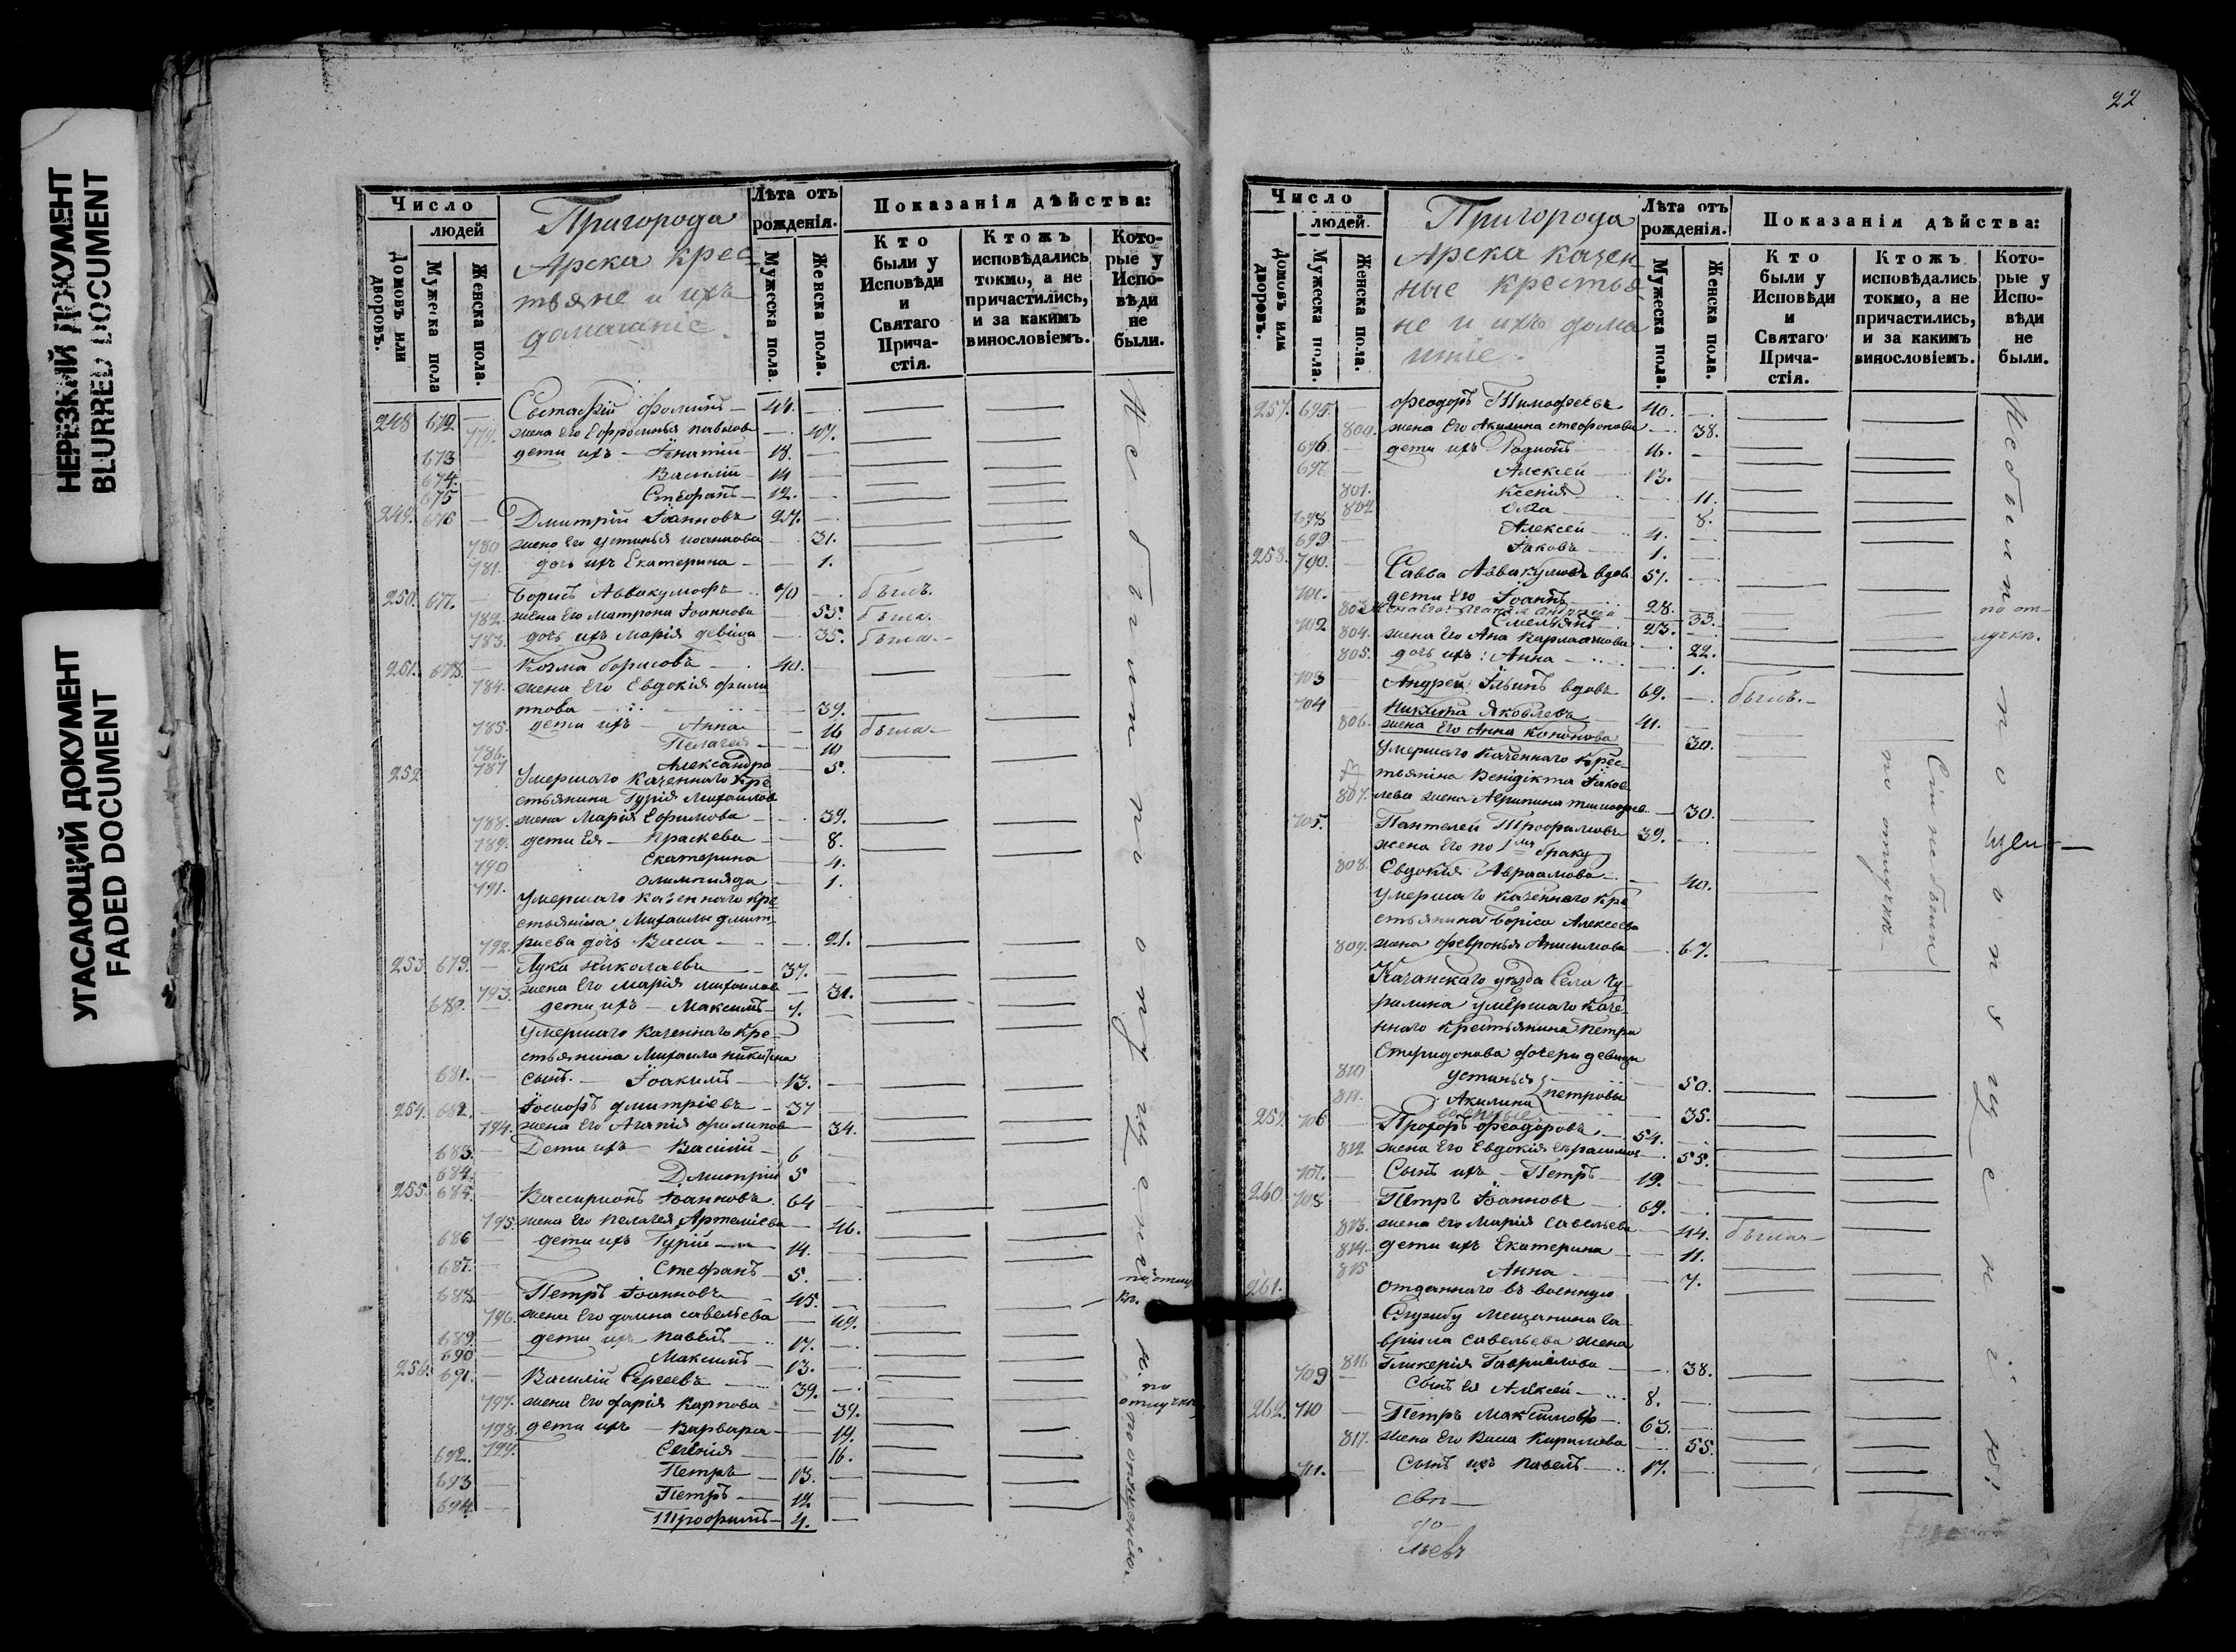 НЕРЕЗКИЙ ДОКУМЕНТ
BLURRED DOCUMENT
УГАСАЮЩИЙ ДОКУМЕНТ
FADED DOCUMENT
Число
людей
Домовъ или дворовъ.
Мужеска пола
Женска пола.
Пригорода
Арска крес-
тьяне и ихъ
домашніе.
Лѣта отъ рожденія.
Мужеска пола.
Женска пола.
Показанія дѣйства:
Кто были у Исповѣди и Святаго Прича-стія.
Ктожъ исповѣдались токмо, а не причастились, и за какимъ винословіемъ.
Кото-рые у Испо-вѣди не были.
248 672 Евстафій Фоминъ 44.
779. жена его Ефросинья Павлова 47.
673 дети ихъ Игнатій 18.
674. Василій 14
675 Стефанъ 12.
249. 676 Дмитрій Іоанновъ 27.
780 жена его Устинья Иоаннова 31.
781. дочь ихъ Екатерина 1.
250. 677. Борисъ Аввакумофъ 70 былъ.
782. жена его Матрона Іоаннова 55. была.
783. дочь ихъ Марія девица 35. была.
251. 678. Козма Борисовъ 40.
784. жена его Евдокія Фили
пова 39.
785. дети ихъ Анна 16 была.
786. Пелагея 10
787 Александра 5.
252. Умершаго Казеннаго Кре-
стьянина Гурія Михаилов
788. жена Марія Ефимова 39.
789. дети Ея Праскева 8.
790 Екатерина 4.
791. Олимпияда 1.
Умершаго Казеннаго Кре-
стьянина Михаилы Дмит-
792. риева дочь Васса 21.
253. 679. Лука Николаевъ 37.
793. жена его Марія Михаилов 31.
680. дети ихъ Максимъ 1.
Умершаго Казеннаго Кре-
стьянина Михаила Никитина
681. сынъ Іоакимъ 13.
254. 682. Іосифъ Дмитріевъ 37
794. жена его Агапія Филипов 34.
683. Дети ихъ Василій 6
684. Дмитрій 5
255. 685. Вассиріонъ Іоанновъ 64
795. жена его Пелагея Артеміева 46.
686 дети ихъ Гурій 14.
687. Стефанъ 5.
688. Петръ Іоанновъ 45.
796. жена его Домна Савельева 49.
689. дети ихъ Павелъ 17.
690 Максимъ 13.
256. 691. Василій Сергеевъ 39.
797. жена его Дарія Карпова 39.
798. дети ихъ Варвара 19.
799. Евгенія 16.
692. Петръ 13.
693 Петръ 12
694. Трофимъ 4.
Не были по опущенію.
по отлучке
по опущенію.
22
Число
людей.
Домовъ или дворовъ.
Мужеска пола.
Женска пола.
Пригорода
Арска казен-
ные крестья
не и ихъ дома
шніе.
Лѣта отъ рожденія.
Мужеска пола.
Женска пола.
Показанія дѣйства:
Кто были у Исповѣди и Святаго Прича-стія.
Ктожъ исповѣдались токмо, а не причастились, и за какимъ винословіемъ.
Кото-рые у Испо-вѣди не были.
257. 695. Феодоръ Тимофеевъ 40.
800. жена его Акилина Стефонова 38.
696 дети ихъ Родионъ 16.
697 Алексей 13.
801. Ксенія 11.
802 8.
698 Алексей 4.
699 Іаковъ 1.
258. 700. Савва Аввакумовъ вдов. 51.
701. дети его Іоаннъ 28.
803 33.
702 Емельянъ 23.
804. жена его 22.
805. дочь ихъ: Анна 1.
703 Андрей Ильинъ вдовъ 69. былъ.
704 Никита Яковлевъ 41.
806. жена его Анна Кононова 30.
Умершаго Казеннаго Крес-
тьянина Венідікта Іаков
807. лева жена Агрипина Тимофее 30.
705. Пантелей Трофимовъ 39.
жена его по 1му браку
808. Евдокія Авраамова 40.
Умершаго Казеннаго Кре
стьянина Бориса Алексеева
809. жена Февронья Анисимова 67.
Казанскаго уѣзда Села Чу-
рилина умершаго Казе-
ннаго Крестьянина Петра
Спиридонова дочери девицы
810 Устинья 50.
811. Акилина Петровы 35.
259. 706 Прохоръ Феодоровъ 54.
812 жена его Евдокія Герасимов 55.
707. Сынъ ихъ Петръ 19.
260. 708 Петръ Іоанновъ 69.
813. жена его Марія Савельева 44. была
814. дети ихъ Екатерина 11.
815 Анна 7.
261. Отданнаго въ военную
Службу Мещанина Га-
вріила Савельева жена
816 Гликерія Гавриілова 38.
709 Сынъ ея Алексей 8.
262. 710 Петръ Максимовъ 63.
817. жена его Васса Кирилова 55.
711. Сынъ ихъ Павелъ 17.
Не были по опущенію.
по от-
лучке.
Сіи не были
по отлучке